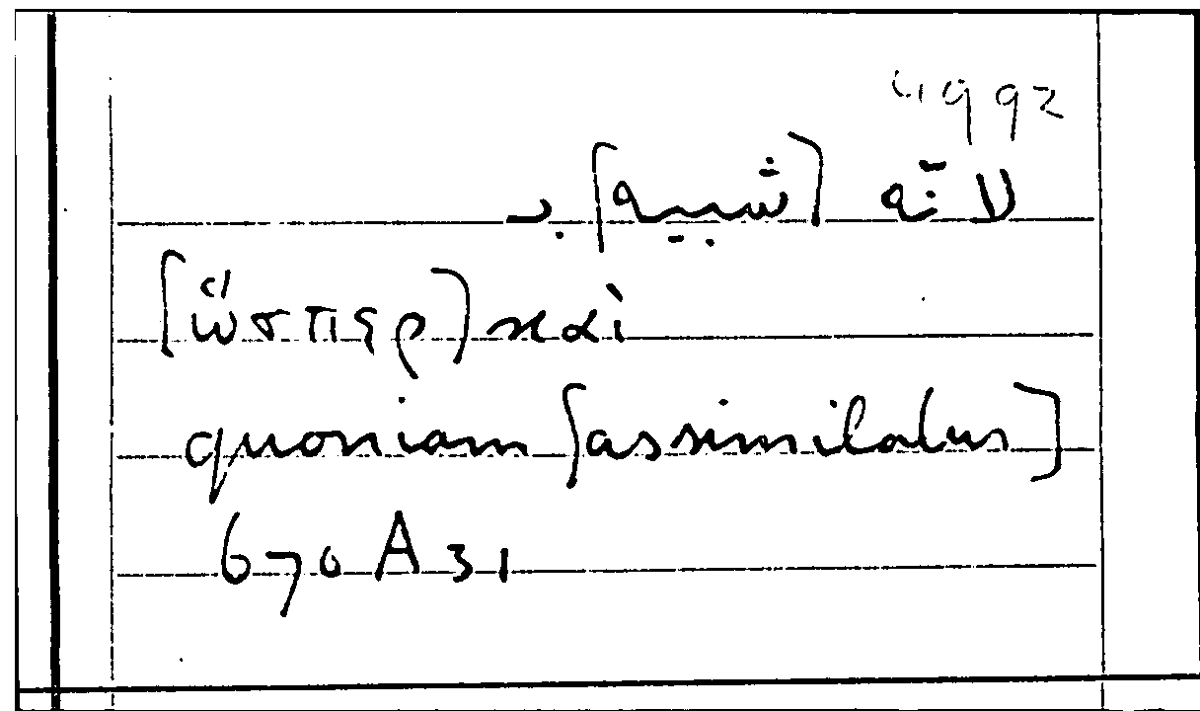 4992
لانّه [شبيه] بـ
[ὥσπερ] καὶ
quoniam [assimilatus]
670 A 31